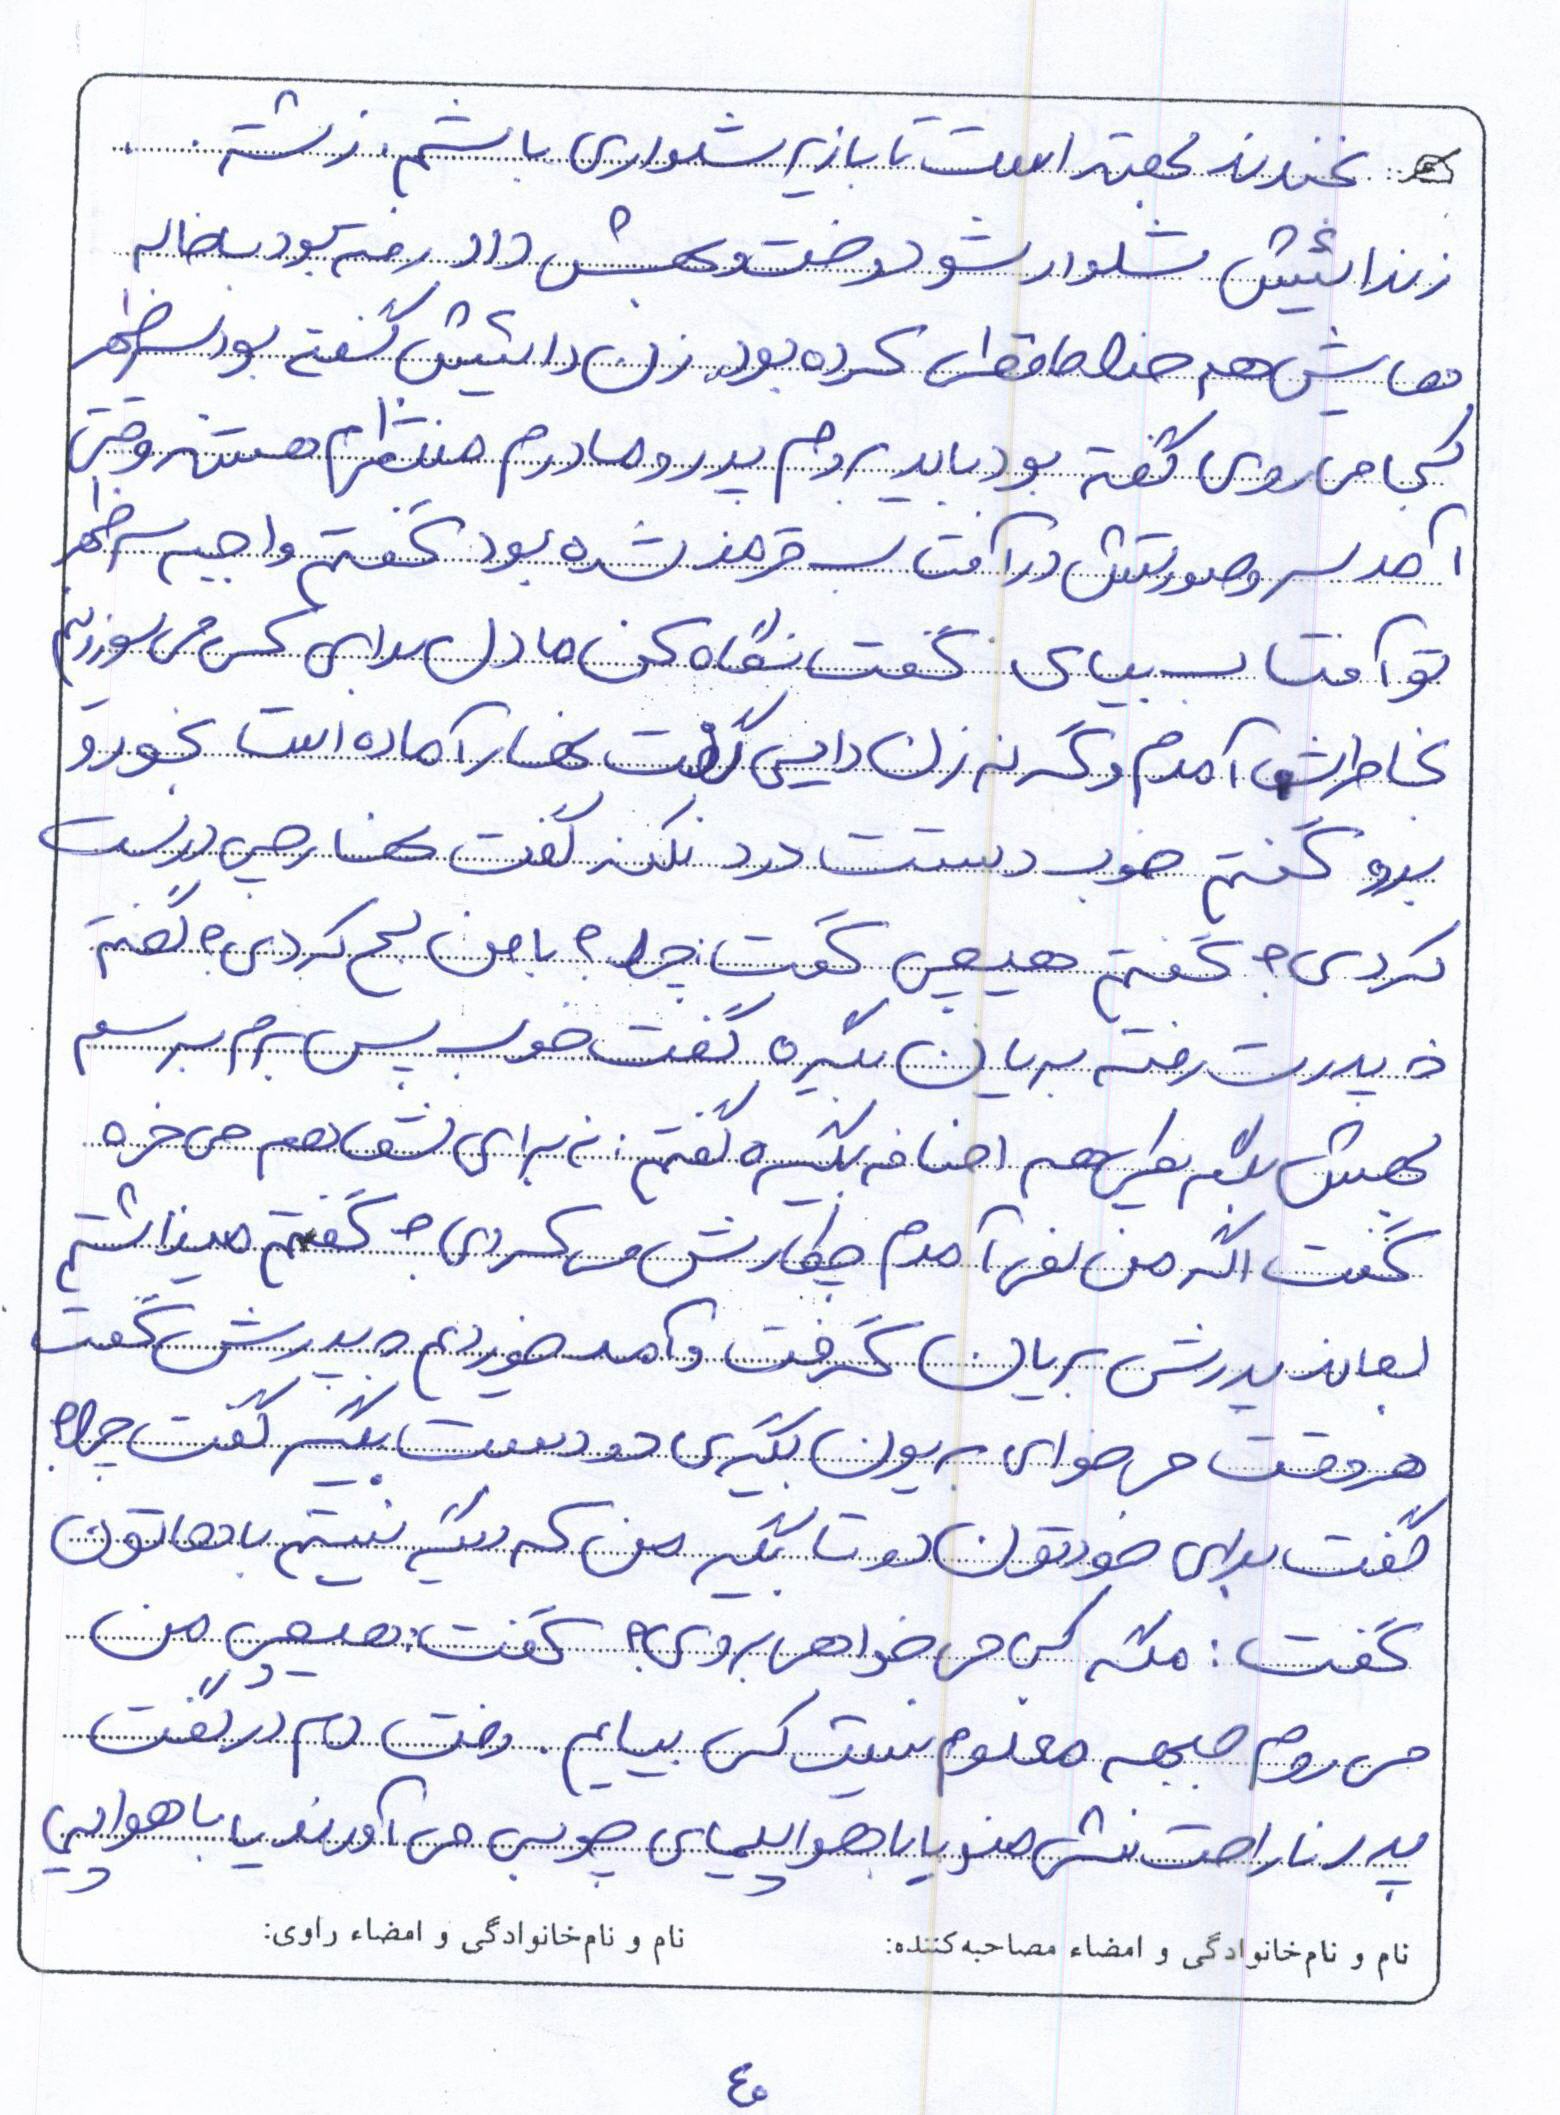 نخندند بهتر است تا با زیر شلواری باشم، زشته.
زندائیش شلوارشو دوخت و بهش داد رفته بود با خاله
هایش هم خداحافظی کرده بود. زن دائیش گفته بود سر ظهر
کجا می روی گفته بود باید بروم پدر و مادرم منتظرم هستند وقتی
آمد سر و صورتش در آفتاب قرمز شده بود گفتم واجبه سر ظهر
تو آفتاب بیای. گفت نگاه کن ما دل برای کی می سوزونیم
بخاطرش آمدم وگرنه زن دایی گفت نهار آماده است بخور و
برو گفتم خوب دستت درد نکنه گفت نهار چی درست
کردی؟ گفتم هیچی گفت: چرا؟ با من لج کردی؟ گفتم
نه پدرت رفته بریان بگیره گفت خوب پس برم برسم
بهش بگم یکی هم اضافه بگیره گفتم: نه برای شما هم می خره
گفت اگه من نمی آمدم چکارش می کردی؟ گفتم میذاشتم
بماند پدرش بریان گرفت و آمد خوردیم و پدرش گفت
هر وقت می خوای بریون بگیری دو دست بگیر گفت چرا؟
گفت برای خودتون دو تا بگیر من که دیگه نیستم باهاتون
گفت: مگه کی می خواهی بروی؟ گفت: هیچی من
می روم جبهه معلوم نیست کی بیایم. رفت دم در گفت
پدر ناراحت نشی منو یا با هواپیمای چوبی می آورند یا با هواپیمای
نام و نام خانوادگی و امضاء مصاحبه کننده: نام و نام خانوادگی و امضاء راوی:
٤٥